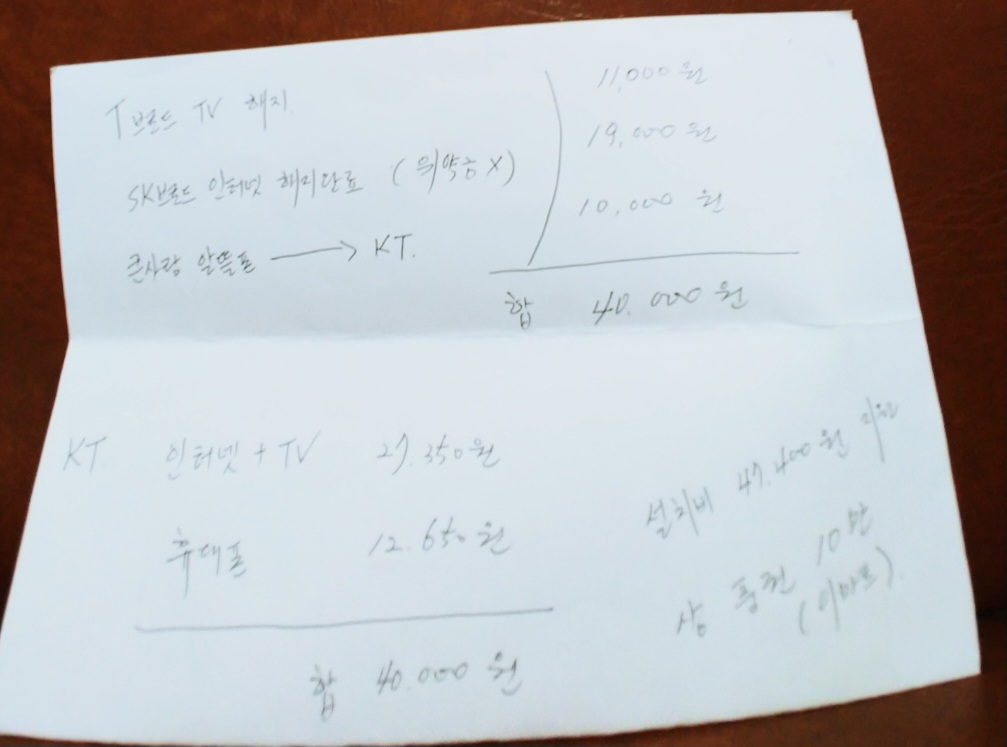 T브로드 TV 해지 11,000원
SK브로드 인터넷 해지만료 (위약금X) 19,000원
큰사랑 알뜰폰 → KT. 10,000원
합 40.000원
KT 인터넷 + TV 27.350원
휴대폰 12.650원
합 40.000원
설치비 47.400원 지원
상품권 10만
(이마트).